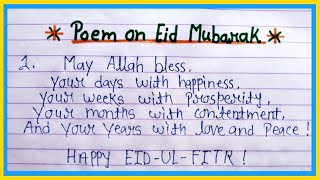 * Poem on Eid Mubarak *
1. May Allah bless,
Your days with happiness,
Your weeks with Prosperity,
Your months with contentment,
And Your Years with love and Peace !
HAPPY EID-UL-FITR !